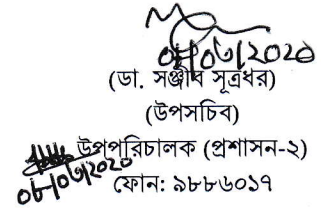 ০৮/০৩/2020
(ডা. সঞ্জীব সূত্রধর)
(উপসচিব)
উপপরিচালক (প্রশাসন-২)
০৮/০৩/2020
ফোন: ৯৮৮৬০১৭